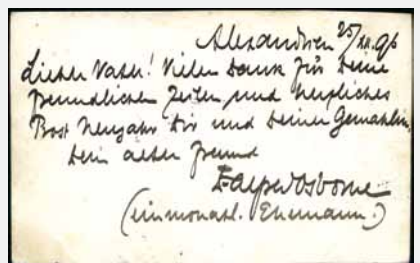 Alexandrien 25/XII.96
Lieber Vater! Vielen Dank für Deine
freundlichen Zeilen und herzliches
Prost Neujahr Dir und Deiner Gemahlin
Dein alter Freund
Osborne
(einmonatl. Ehemann.)